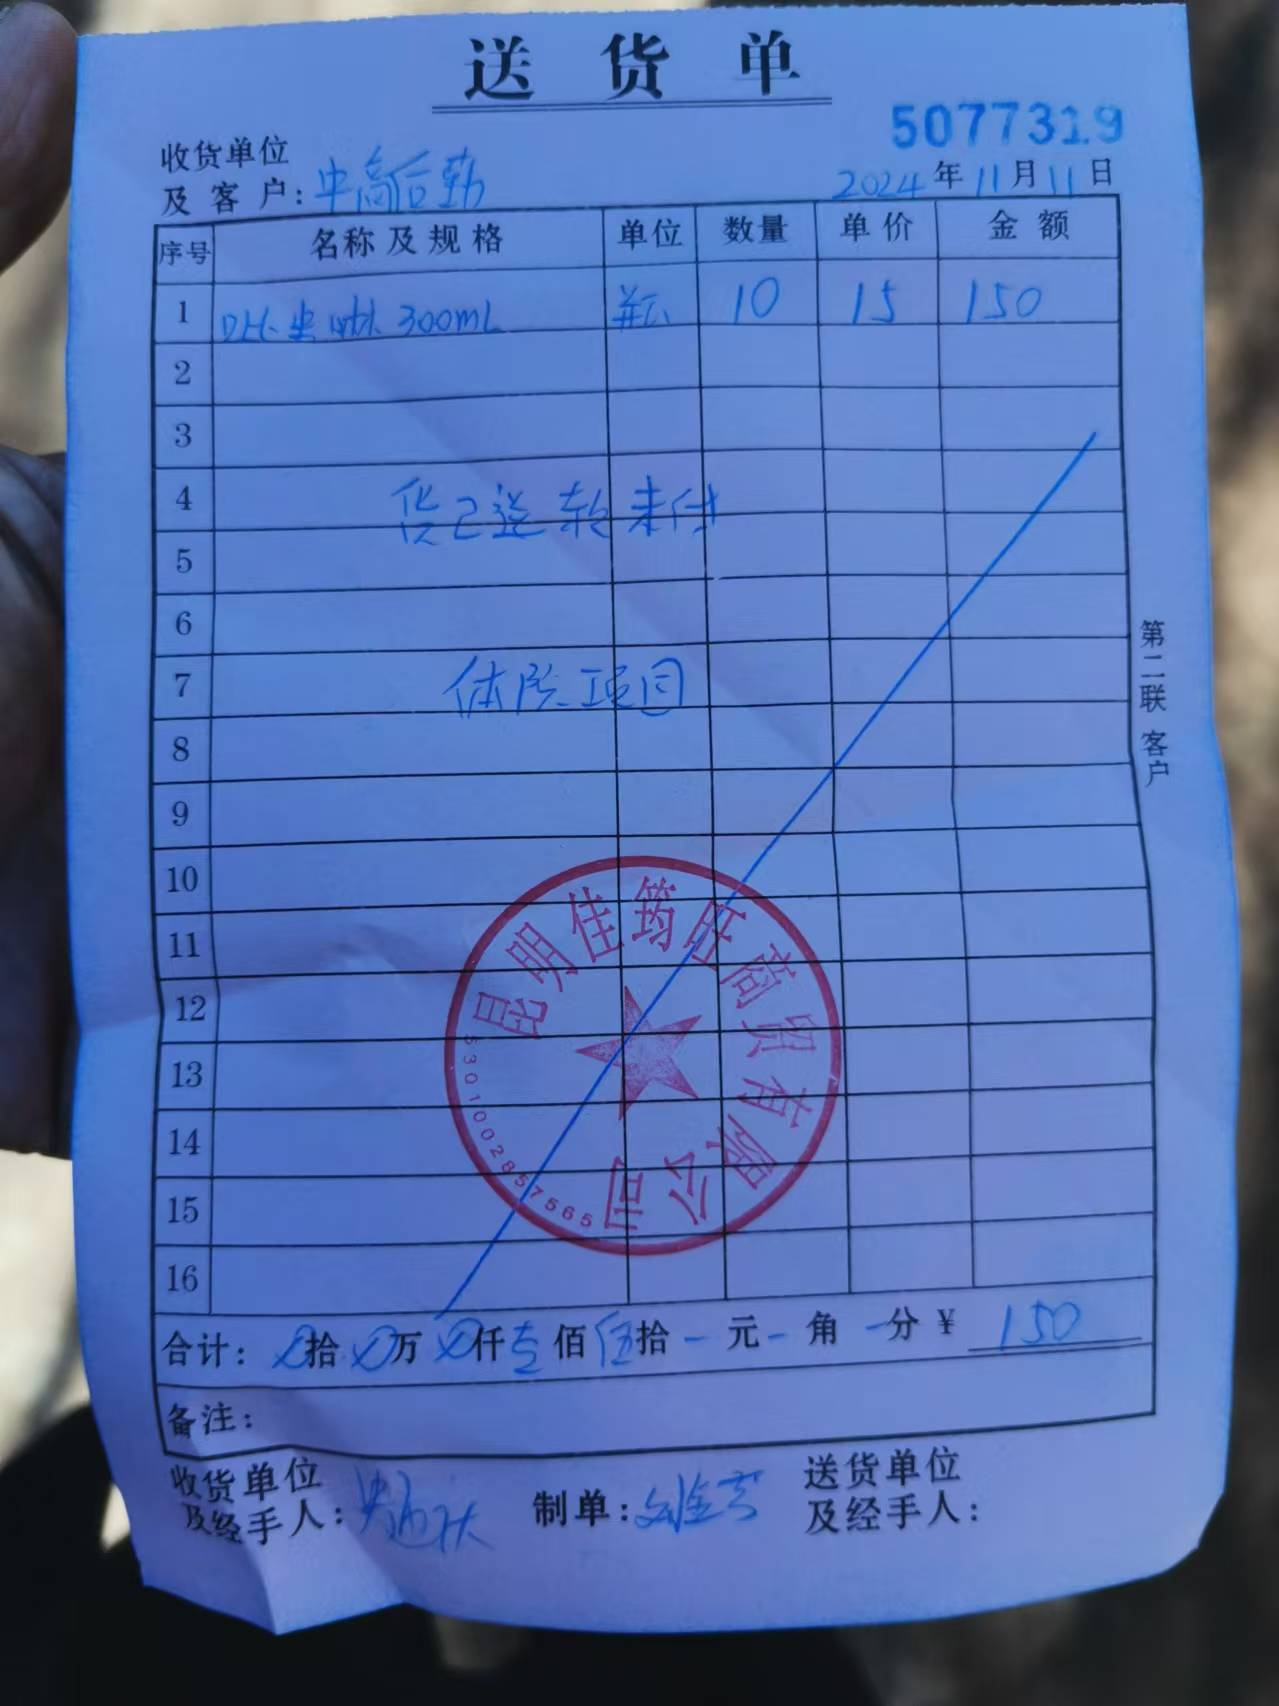 送货单
5077319
收货单位
及客户: 中高后勤
2024年11月11日
序号 名称及规格 单位 数量 单价 金额
1 300mL 瓶 10 15 150
2
3
4
货已送 款未付
5
6
7
体院项目
8
9
10
11
12
13
14
15
16
昆明佳筠旺商贸有限公司
5301002857565
合计: 拾 万 仟 壹佰 伍拾 元 角 分 ¥ 150
备注:
收货单位
及经手人:
制单:
送货单位
及经手人:
第二联 客户